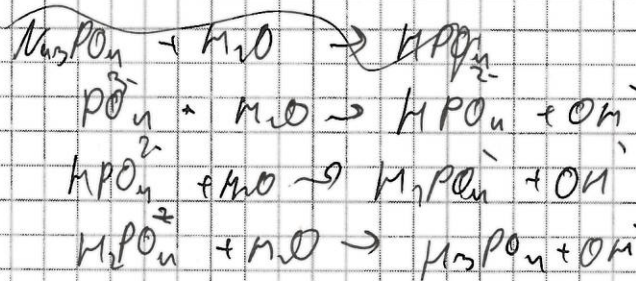 Na₃PO₄ + H₂O → HPO₄
PO₄³⁻ + H₂O → HPO₄²⁻ + OH⁻
HPO₄²⁻ + H₂O → H₂PO₄⁻ + OH⁻
H₂PO₄⁻ + H₂O → H₃PO₄ + OH⁻